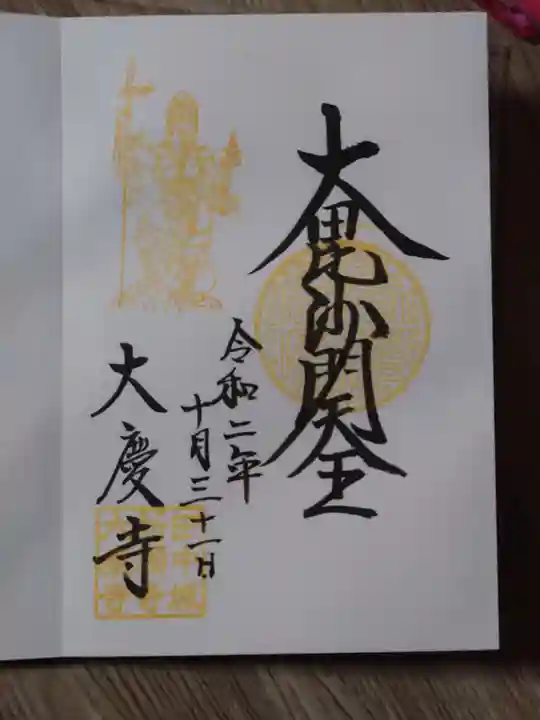 大毘沙門天王
令和二年
十月三十一日
大慶寺